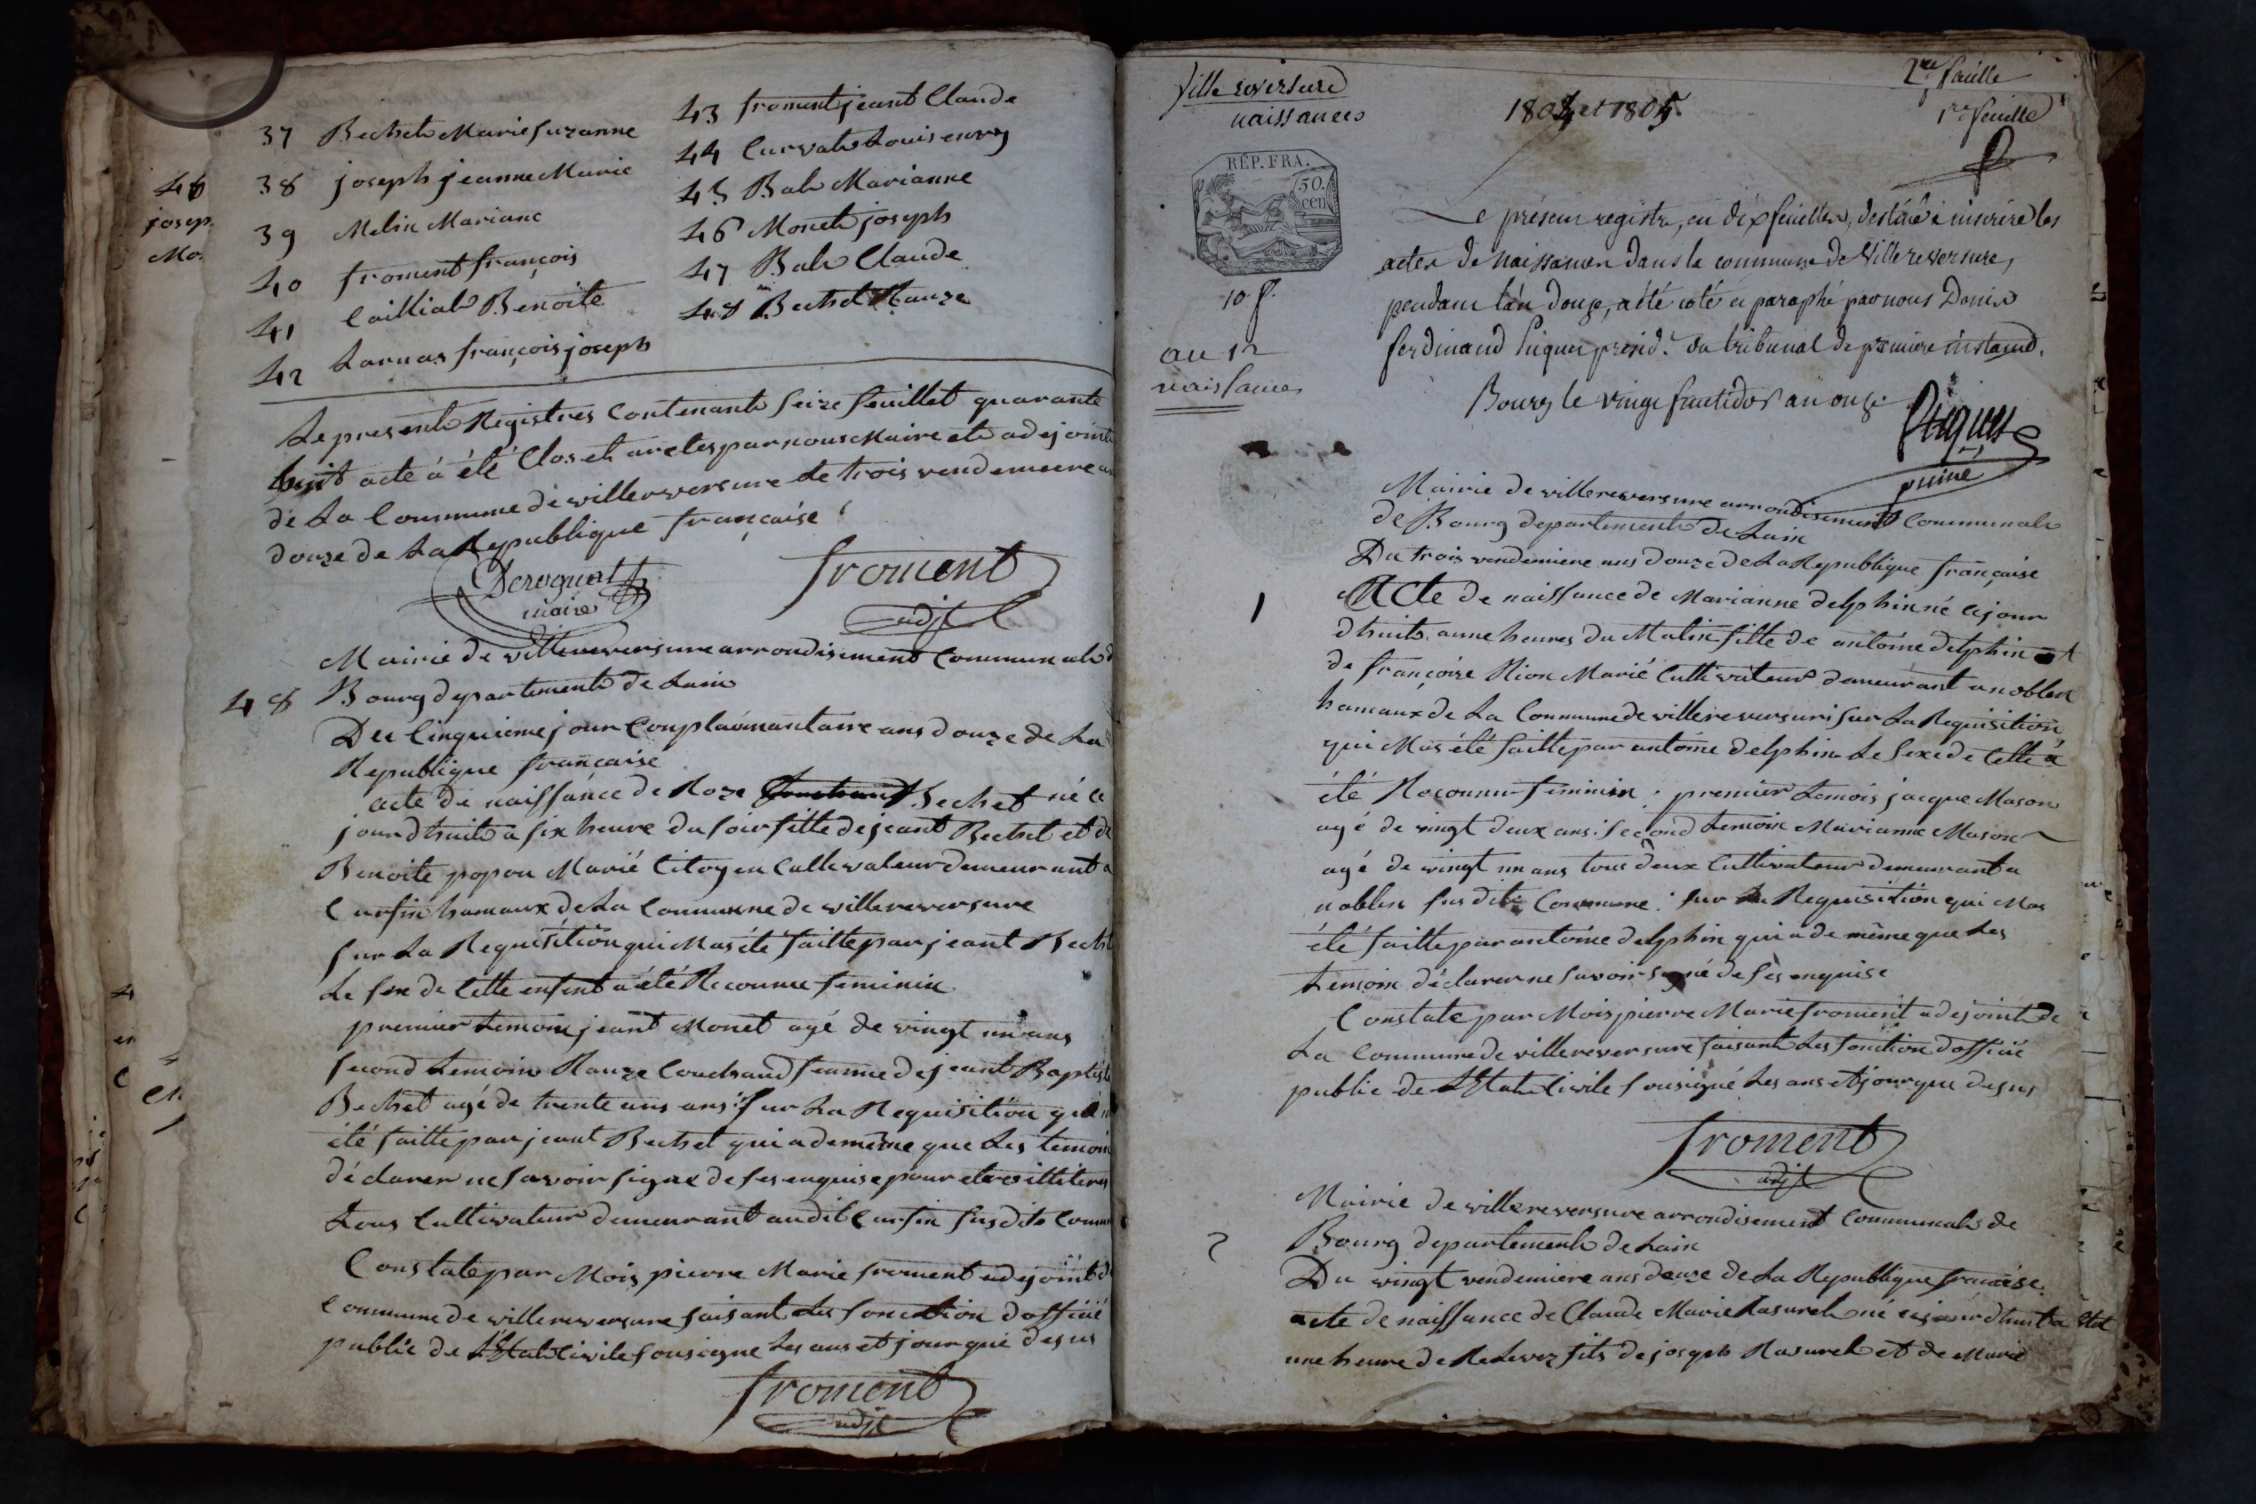 37 Bechet Marie Suzanne
38 joseph jeanne Marie
39 Melin Mariane
40 froment françois
41 Cailliat Benoite
42 Larnas françois joseph
43 froment jeant Claude
44 Curvat Louis enry
45 Bal Marianne
46 Monet joseph
47 Bal Claude
48 Bechet Rauze
Le present Registres Contenant Seize feuillet quarante
huit acte à été Clos et aretes par nous Maire et adejoint
de La Commune de villerversure de trois vendemiere
douze de La Republique française
maire
froment
adjt
Mairie de villereversure arrondisement Communale
48 Bourg departement de Lain
Du Cinquieme jour Conplaimantaire ans douze de La
Republique française
acte de naissance de Roze Bechet né Ce
jourdhuit à six heure du soir fille de jeant Bechet et de
Benoite popon Marié Citoyen Cultivateur demeurant a
Curfin hamaux de La Commune de villereversure
sur La Requisition qui Mas été faitte par jeant Bechet
Le sex de Cette enfent a été Reconnu feminin
premier temoin jeant Monet agé de vingt un ans
second temoin Rauze Couchaud feamme de jeant Baptiste
Bechet agé de trente ans : sur La Requisition qui
été faitte par jeant Bechet qui ademême que Les temoin
déclarer ne savoir signe de ses enquise pour etre illiteres
tous Cultivateur demeurant audit Curfin susdite Commune
Constate par Mois pierre Marie froment adejoint de
Commune de villereversure faisant Les fonction dofficié
public de LEtat Civile sousigne Les ans et jour que desus
froment
adjt
Ville reversure
naissances
1804 et 1805
1re feuille
REP. FRA.
50. cen
10 f.
an 12
naissances
Le présent registre, en dix feuilles, destiné à inscrire les
actes de naissance dans la commune de Villereversure,
pendant l'an douze, a été coté et paraphé par nous Denis
ferdinand Piquet presid.t du tribunal de premiere instance.
Bourg le vingt fructidor an onze
Piquet
Mairie de villereversure arrondisement Communale
de Bourg departement de Lain
Du trois vendemiere ans douze de La Republique française
1 Acte de naissance de Marianne delphin né Cejour
dhuit aune heures du Matin fille de antoine delphin et
de françoize Rion Marié Cultivateur demeurant a noblen
hamaux de La Commune de villereversure sur La Requisition
qui Mas été faitte par antoine delphin Le sexe de Cette à
été Reconnu feminin : premier temois jacque Mason
agé de vingt deux ans : second temoin Marianne Mason
agé de vingt un ans tous deux Cultivateur demeurant a
noblen susdite Commune : sur La Requisition qui Mas
été faitte par antoine delphin qui a de même que Les
temoin déclarer ne savoir signé de ses enquise
Constate par Mois pierre Marie froment adejoint de
La Commune de villereversure faisant Les fonction dofficié
public de LEtat Civile sousigné Les ans et jour que desus
froment
adjt
Mairie de villereversure arrondisement Communale de
2 Bourg departement de Lain
Du vingt vendemiere ans douze de La Republique française
acte de naissance de Claude Marie Rasurel né cejourdhuit a
une heure de Relevez fils de joseph Rasurel et de Marie